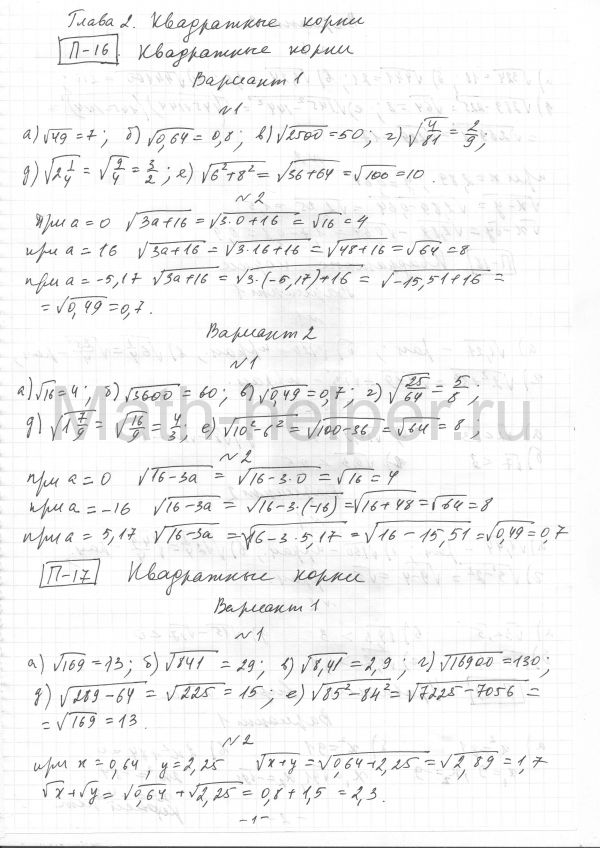 Глава 2. Квадратные корни
П-16 Квадратные корни
Вариант 1
№1
а) √49 = 7; б) √0,64 = 0,8; в) √2500 = 50; г) √(4/81) = 2/9;
д) √(2 1/4) = √(9/4) = 3/2; е) √(6²+8²) = √(36+64) = √100 = 10.
№2
при a = 0 √(3a+16) = √(3·0+16) = √16 = 4
при a = 16 √(3a+16) = √(3·16+16) = √(48+16) = √64 = 8
при a = -5,17 √(3a+16) = √(3·(-5,17)+16) = √(-15,51+16) =
= √0,49 = 0,7.
Вариант 2
№1
а) √16 = 4; б) √3600 = 60; в) √0,49 = 0,7; г) √(25/64) = 5/8;
Math-helper.ru
д) √(1 7/9) = √(16/9) = 4/3; е) √(10²-6²) = √(100-36) = √64 = 8;
№2
при a = 0 √(16-3a) = √(16-3·0) = √16 = 4
при a = -16 √(16-3a) = √(16-3·(-16)) = √(16+48) = √64 = 8
при a = 5,17 √(16-3a) = √(16-3·5,17) = √(16-15,51) = √0,49 = 0,7
П-17 Квадратные корни
Вариант 1
№1
а) √169 = 13; б) √841 = 29; в) √8,41 = 2,9; г) √16900 = 130;
д) √(289-64) = √225 = 15; е) √(85²-84²) = √(7225-7056) =
= √169 = 13.
№2
при x = 0,64, y = 2,25 √(x+y) = √(0,64+2,25) = √2,89 = 1,7
√x+√y = √0,64 + √2,25 = 0,8 + 1,5 = 2,3.
-1-